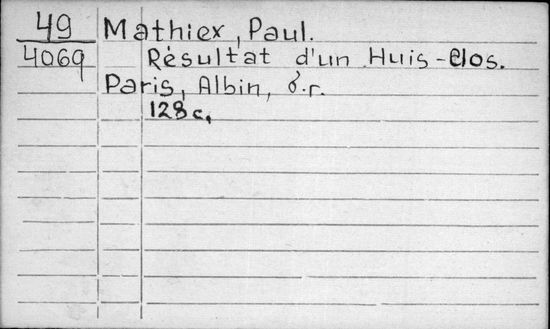 49 Mathiex, Paul.
4069 Résultat d'un Huis-Clos.
Paris, Albin, б.г.
128 с.